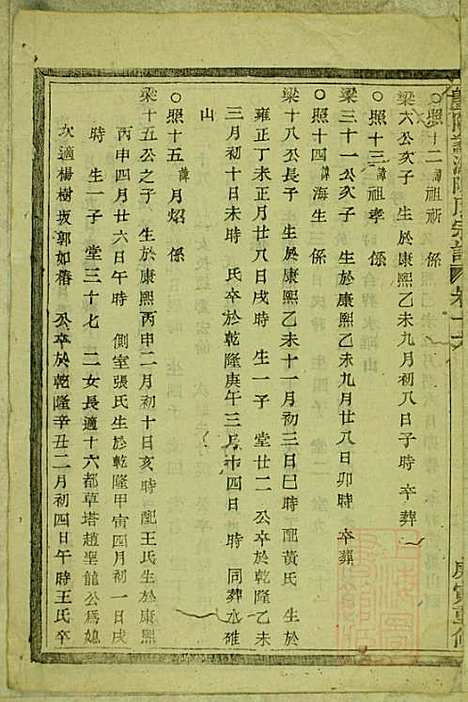 陳氏宗譜
卷十六
庚寅重修
○照十二諱祖新 係
梁六公次子 生於康熙乙未九月初八日子時 卒葬
○照十三諱祖孝 係
梁三十一公次子 生於康熙乙未九月廿八日卯時 卒葬
○照十四諱海生 係
梁十八公長子 生於康熙乙未十一月初三日巳時 配黃氏 生於
雍正丁未正月廿八日戌時 生一子 堂廿二 公卒於乾隆乙未
三月初十日未時 氏卒於乾隆庚午三月十四日 時 同葬水碓
山
○照十五諱月炤 係
梁十五公之子 生於康熙丙申二月初十日亥時 配王氏生於康熙
丙申四月廿六日午時 側室張氏生於乾隆甲寅四月初一日戌
時 生一子 堂三十七 二女長適十六都草塔趙聖龍公爲媳
次適楊樹坂郭如椿 公卒於乾隆辛丑二月初四日午時王氏卒